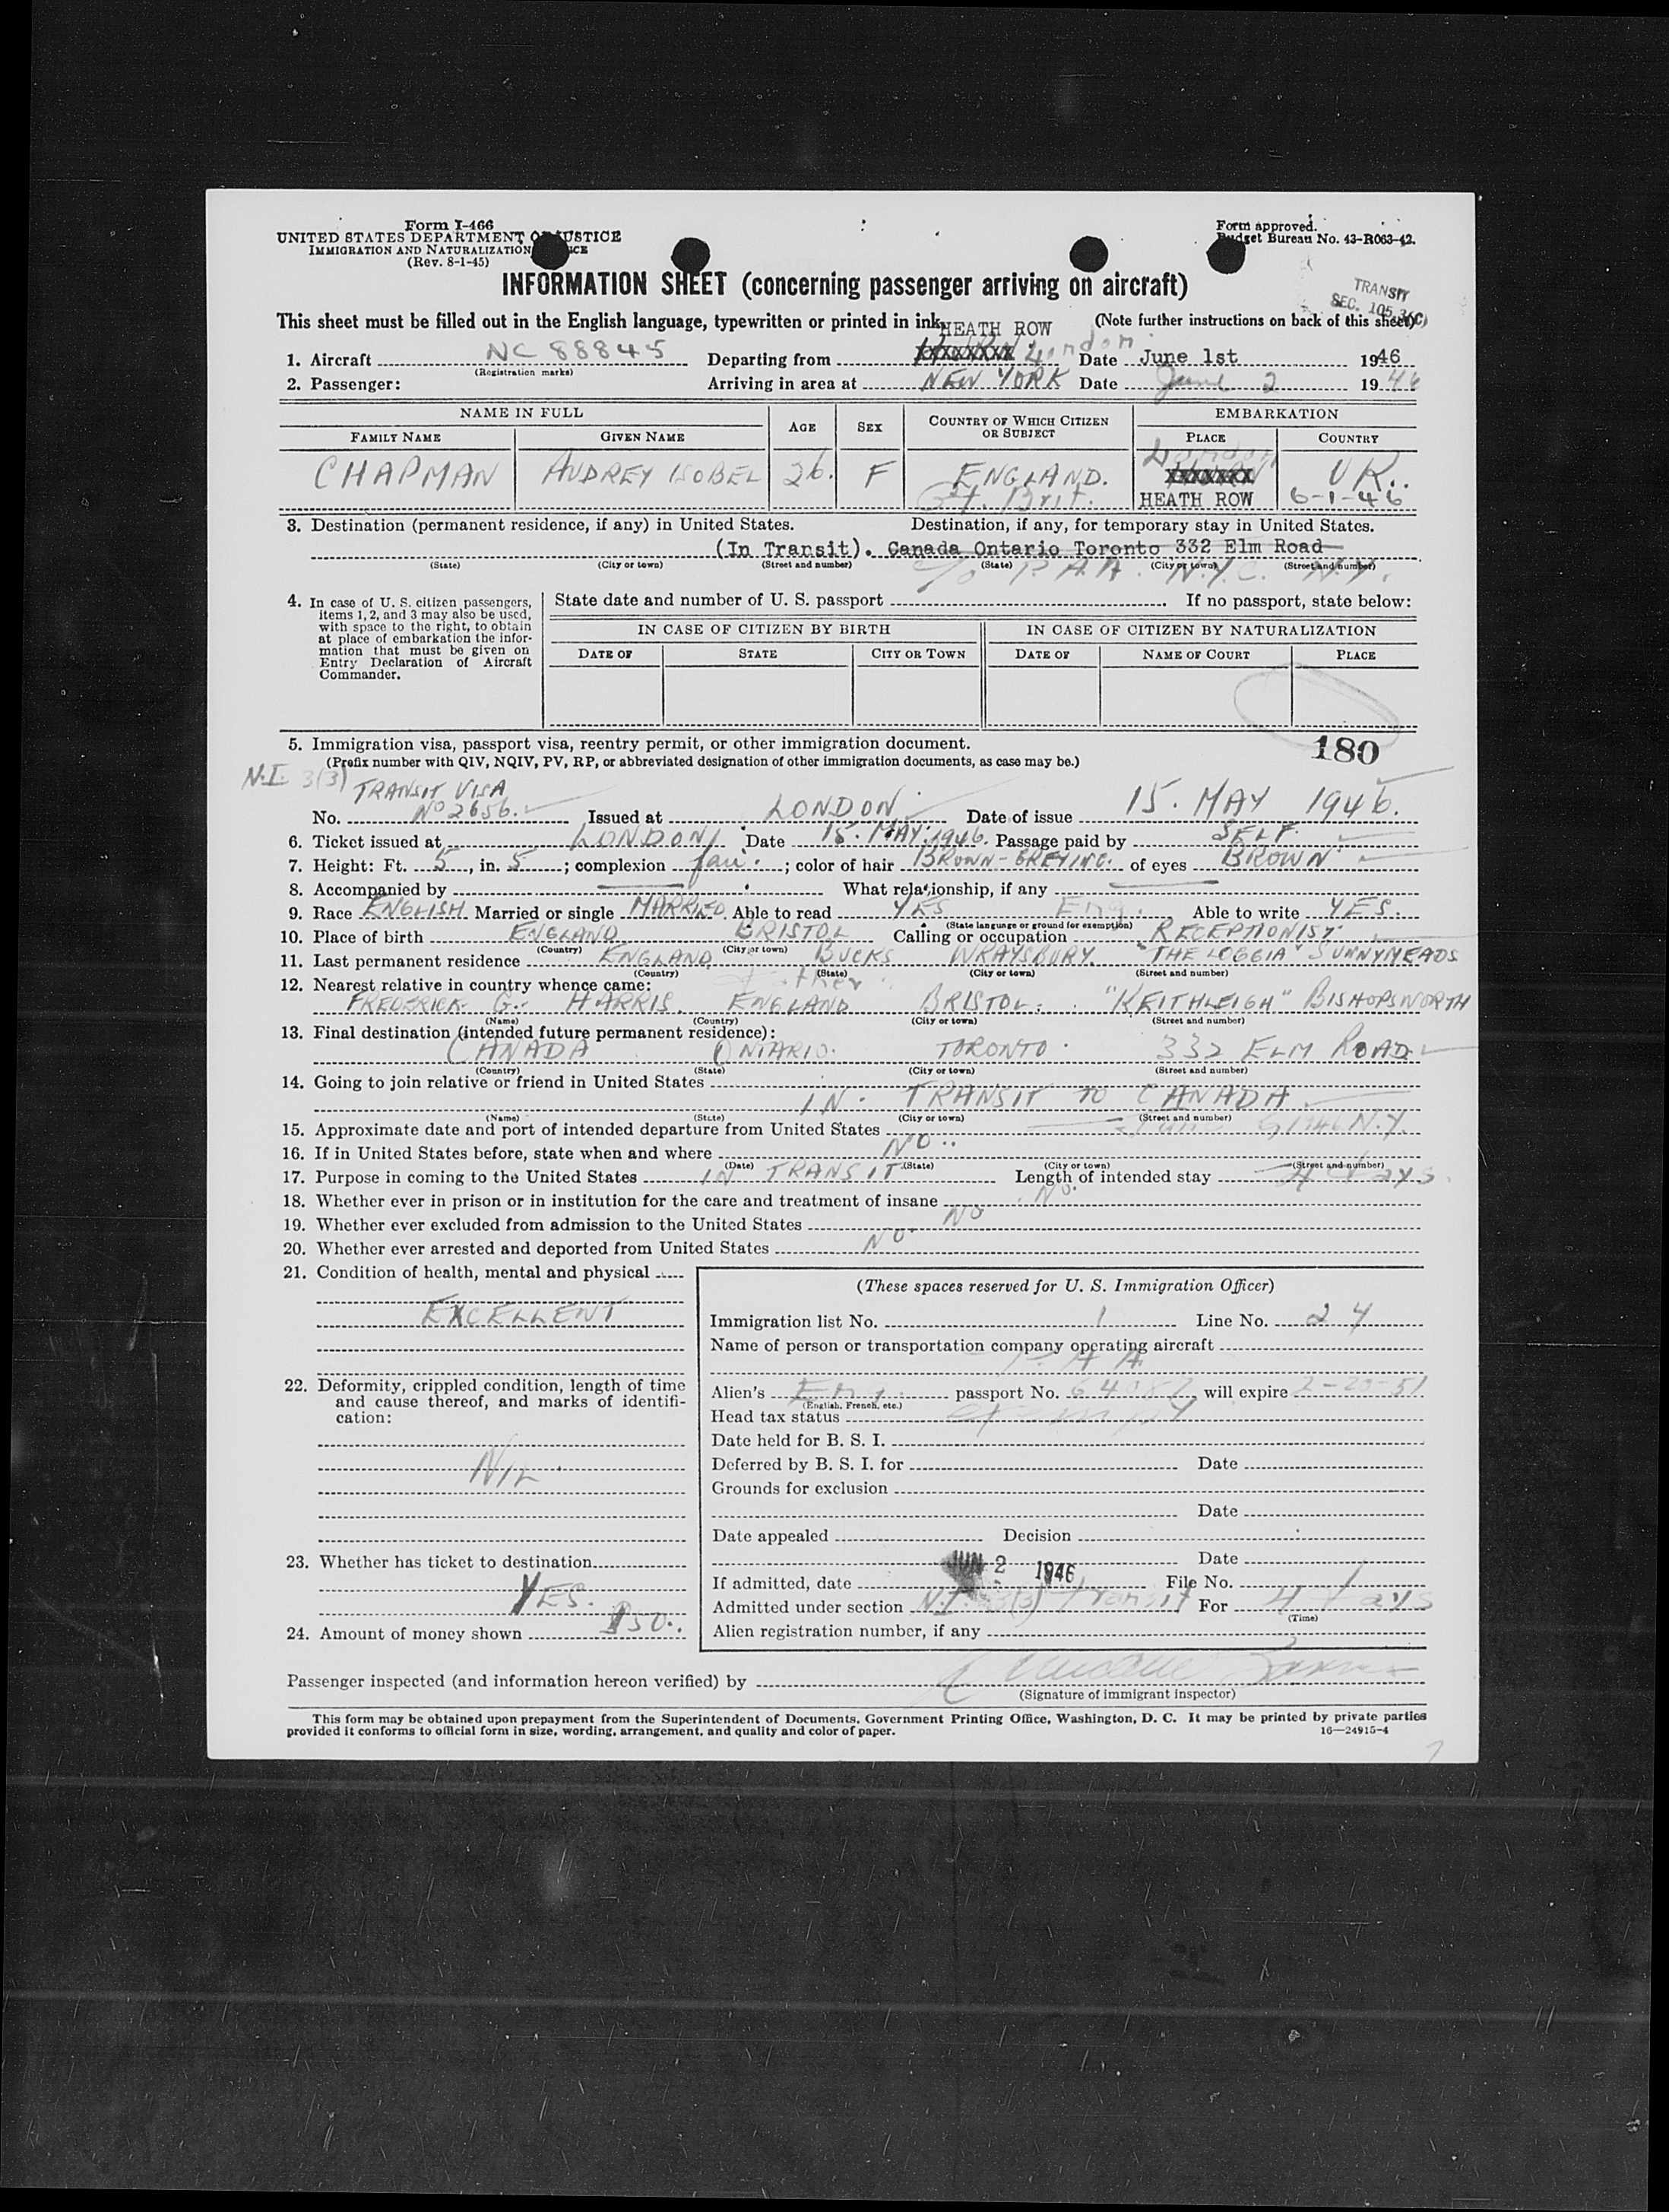 Form I-466
UNITED STATES DEPARTMENT OF JUSTICE
IMMIGRATION AND NATURALIZATION
(Rev. 8-1-45)
Form approved.
Budget Bureau No. 43-R063-42.
INFORMATION SHEET (concerning passenger arriving on aircraft)
TRANSIT
SEC. 105.3(C)
This sheet must be filled out in the English language, typewritten or printed in ink. (Note further instructions on back of this sheet)
HEATH ROW
1. Aircraft NC 88845 Departing from London Date June 1st 1946
(Registration marks)
2. Passenger: Arriving in area at NEW YORK Date June 2 1946
NAME IN FULL AGE SEX COUNTRY OF WHICH CITIZEN OR SUBJECT EMBARKATION
FAMILY NAME GIVEN NAME PLACE COUNTRY
London
CHAPMAN AUDREY ISOBEL 26. F ENGLAND. XXXXXXX UK..
Gt. Brit. HEATH ROW 6-1-46
3. Destination (permanent residence, if any) in United States. Destination, if any, for temporary stay in United States.
(In Transit). Canada Ontario Toronto 332 Elm Road
(State) (City or town) (Street and number) (State) (City or town) (Street and number)
c/o P.A.A. N.Y.C. N.Y.
4. In case of U. S. citizen passengers, items 1, 2, and 3 may also be used, with space to the right, to obtain at place of embarkation the information that must be given on Entry Declaration of Aircraft Commander.
State date and number of U. S. passport If no passport, state below:
IN CASE OF CITIZEN BY BIRTH IN CASE OF CITIZEN BY NATURALIZATION
DATE OF STATE CITY OR TOWN DATE OF NAME OF COURT PLACE
5. Immigration visa, passport visa, reentry permit, or other immigration document.
180
(Prefix number with QIV, NQIV, PV, RP, or abbreviated designation of other immigration documents, as case may be.)
N.I. 3(3) TRANSIT VISA
No. Nº 2656. Issued at LONDON Date of issue 15. MAY 1946.
6. Ticket issued at LONDON Date 15. MAY. 1946. Passage paid by SELF.
7. Height: Ft. 5, in. 5; complexion fair.; color of hair BROWN-GREYING. of eyes BROWN
8. Accompanied by What relationship, if any
9. Race ENGLISH Married or single MARRIED Able to read YES Eng. Able to write YES.
(State language or ground for exemption)
10. Place of birth ENGLAND BRISTOL Calling or occupation RECEPTIONIST
(Country) (City or town)
11. Last permanent residence ENGLAND BUCKS WRAYSBURY. "THE LOGGIA" SUNNYMEADS
(Country) (State) (City or town) (Street and number)
12. Nearest relative in country whence came: Father
FREDERICK G. HARRIS. ENGLAND BRISTOL. "KEITHLEIGH" BISHOPSWORTH
(Name) (Country) (City or town) (Street and number)
13. Final destination (intended future permanent residence):
CANADA ONTARIO. TORONTO. 332 ELM ROAD.
(Country) (State) (City or town) (Street and number)
14. Going to join relative or friend in United States
IN. TRANSIT TO CANADA
(Name) (State) (City or town) (Street and number)
15. Approximate date and port of intended departure from United States June 6, 1946 N.Y.
16. If in United States before, state when and where NO..
(Date) (State) (City or town) (Street and number)
17. Purpose in coming to the United States IN TRANSIT Length of intended stay 4 days
18. Whether ever in prison or in institution for the care and treatment of insane No.
19. Whether ever excluded from admission to the United States NO
20. Whether ever arrested and deported from United States NO
21. Condition of health, mental and physical
EXCELLENT
22. Deformity, crippled condition, length of time and cause thereof, and marks of identification:
NIL
23. Whether has ticket to destination
YES.
24. Amount of money shown $50.
(These spaces reserved for U. S. Immigration Officer)
Immigration list No. 1 Line No. 24
Name of person or transportation company operating aircraft
P.A.A.
Alien's Eng. passport No. 64087, will expire 2-20-51
(English, French, etc.)
Head tax status exempt
Date held for B. S. I.
Deferred by B. S. I. for Date
Grounds for exclusion
Date
Date appealed Decision
Date
If admitted, date JUN 2 1946 File No.
Admitted under section N.I. 3(3) Transit For 4 days
(Time)
Alien registration number, if any
Passenger inspected (and information hereon verified) by
(Signature of immigrant inspector)
This form may be obtained upon prepayment from the Superintendent of Documents, Government Printing Office, Washington, D. C. It may be printed by private parties
provided it conforms to official form in size, wording, arrangement, and quality and color of paper. 16—24915-4